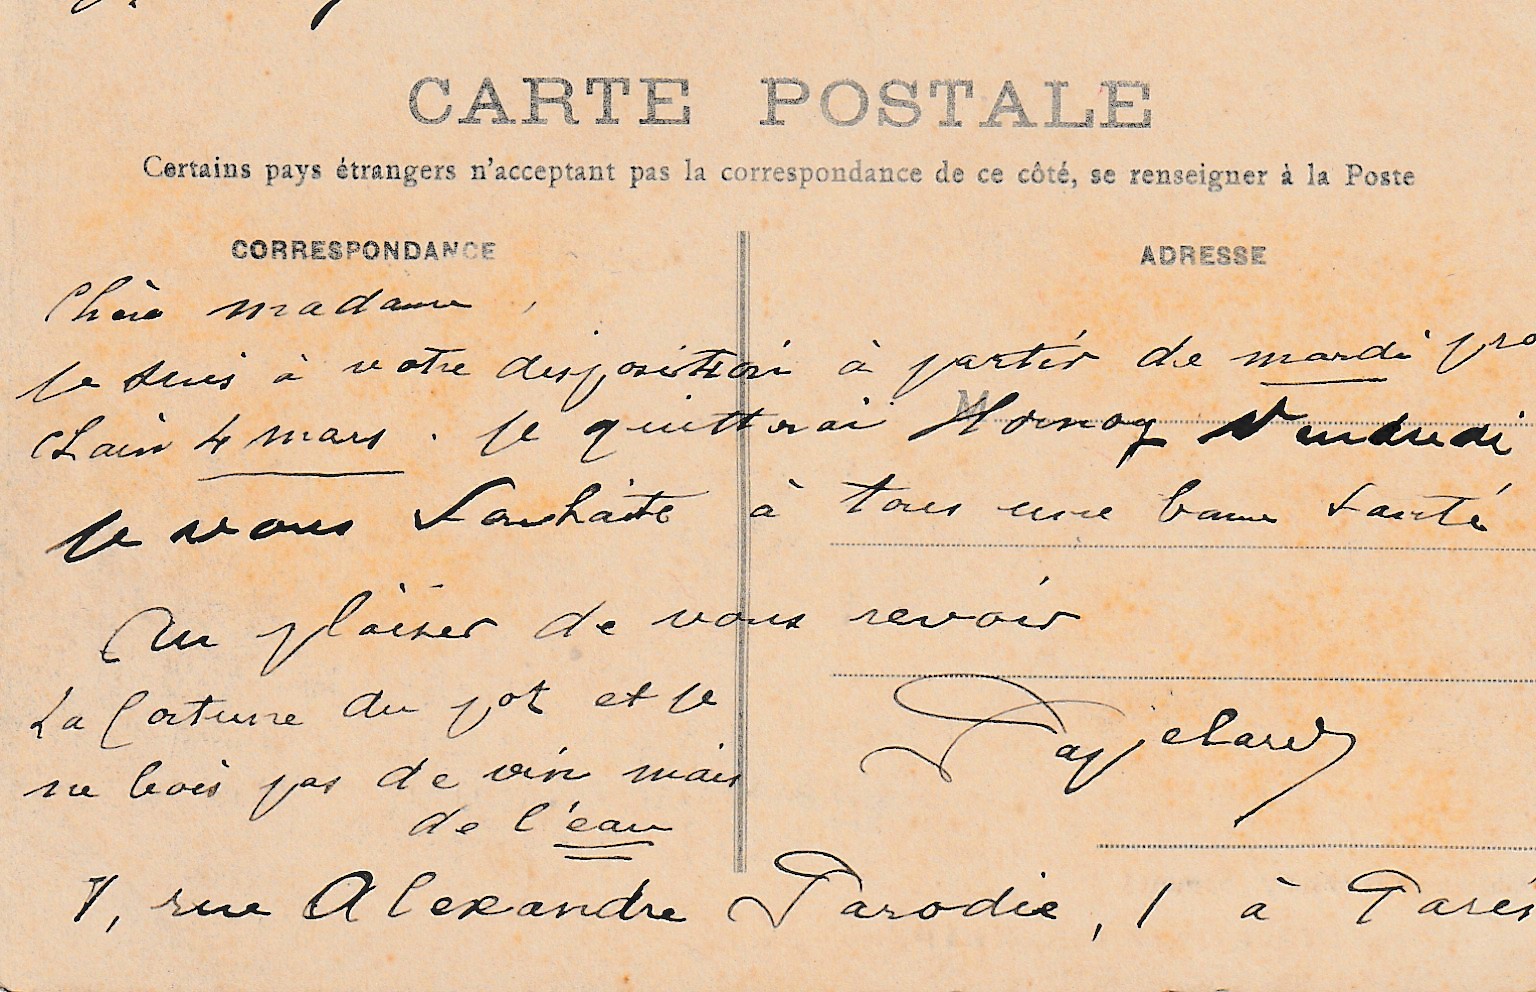 CARTE POSTALE
Certains pays étrangers n'acceptant pas la correspondance de ce côté, se renseigner à la Poste
CORRESPONDANCE
ADRESSE
Chère madame,
je suis à votre disposition à partir de mardi pro
chain 4 mars. je quitterai Hornoy Vendredi
M
je vous souhaite à tous une bonne santé
Au plaisir de vous revoir
La fortune du pot et je
ne bois pas de vin mais
de l'eau
7, rue Alexandre Parodie, 1 à Paris